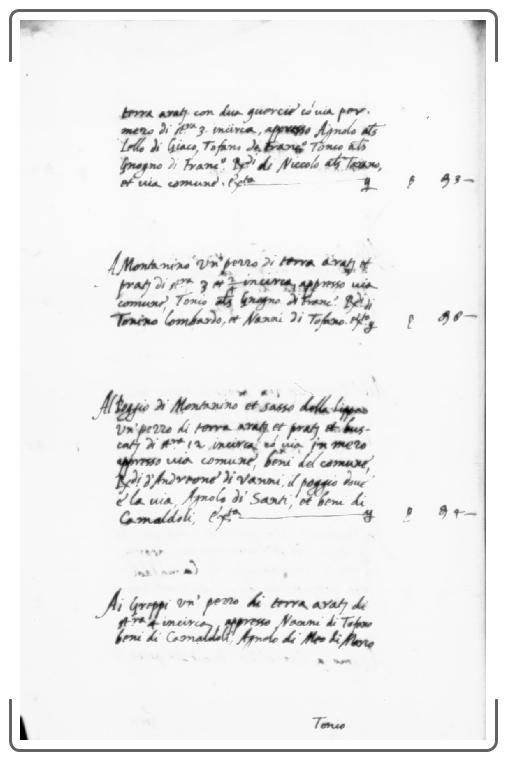 terra aratj con dua quercie có via per.
mezo di stra 3. incirca, appresso Agnolo als
Lello di Giaco, Tofano de Franco Tonco als
Gnogno di Franco. Rdi de Niccolo als Tozano,
et via comune. exta y β 93—
A Montanino un' pezzo di terra aratj et
pratj di stra 3 et 2 incirca appresso via
comune, Tonco als Gnogno di Franco Rdi di
Tonino Lombardo, et Nanni di Tofano. exta y β 98—
Al Poggio di Montanino et sasso della
un' pezzo di terra aratj et pratj et bus-
catj di stra 12 incirca có via in mezo
appresso via comune, beni del comune,
Rdi d'Andreone di Vanni, il poggio doue
é la via, Agnolo di Santi, et beni di
Camaldoli, exta y β 94—
Ai Greppi un' pezzo di terra aratj di
stra 4 incirca, appresso Nanni di Tofano
beni di Camaldoli, Agnolo di Meo di
Tonco